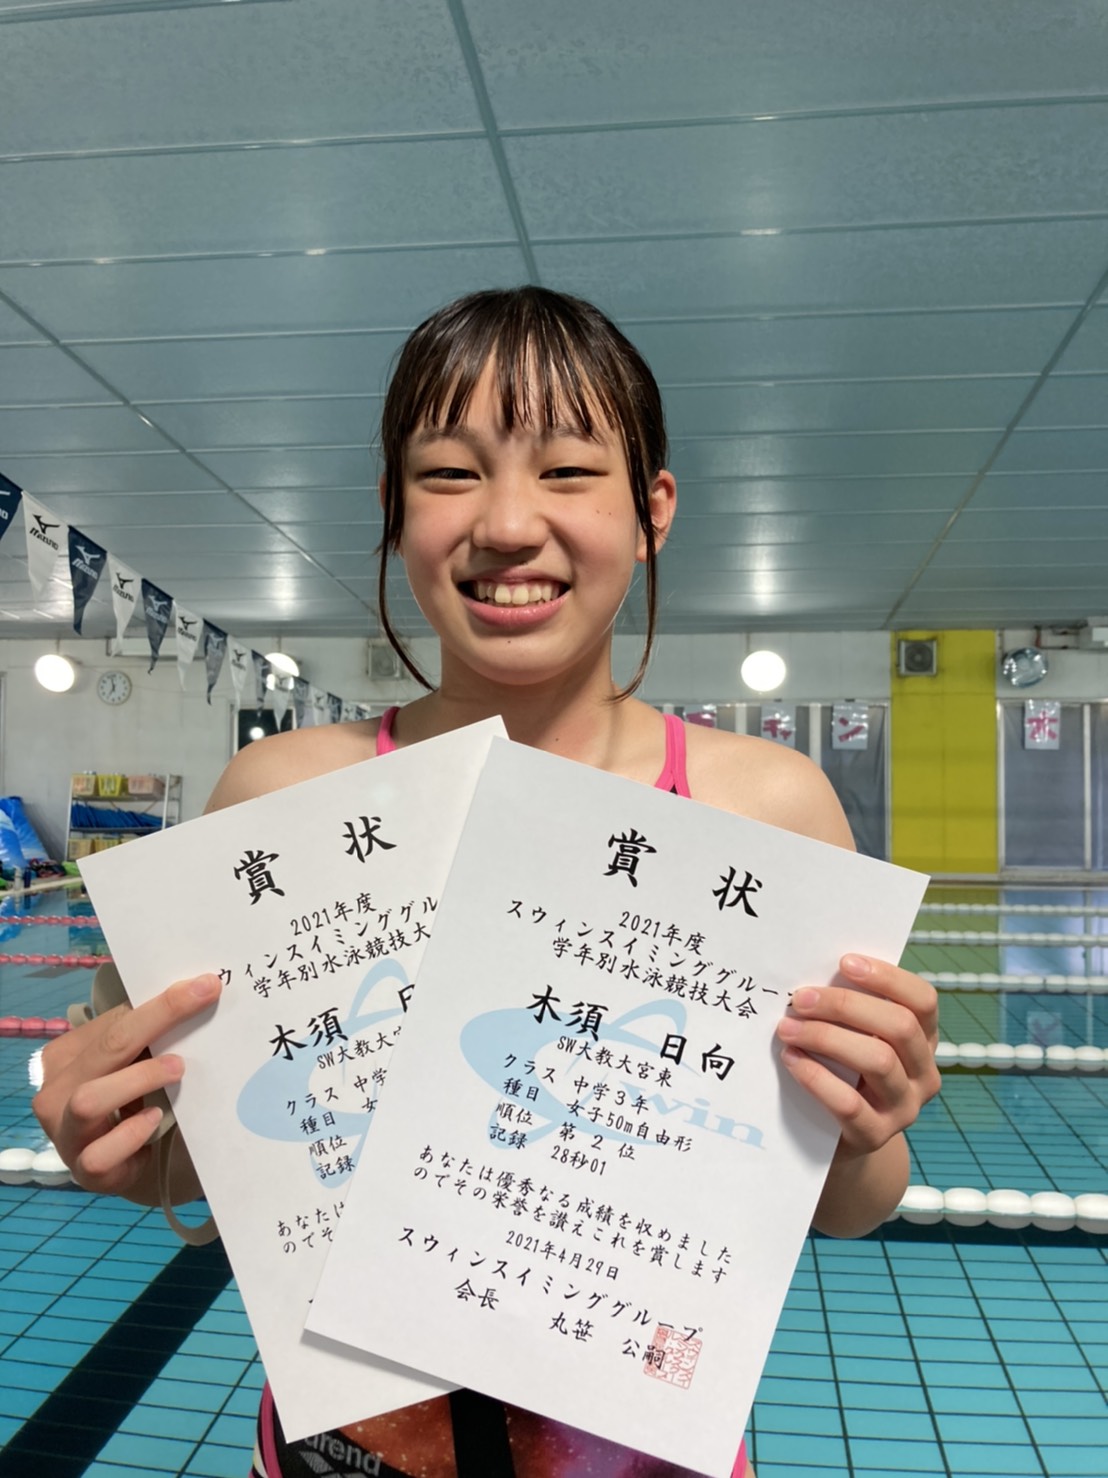 MIZUNO
MIZUNO
キャン
水
賞 状
2021年度
ウィンスイミンググル
学年別水泳競技大
木須 日
SW大教大宮
クラス 中学
種目 女
順位
記録
あなたは
のでそ
賞 状
2021年度
スウィンスイミンググルー
学年別水泳競技大会
木須 日向
SW大教大宮東
クラス 中学3年
種目 女子50m自由形
順位 第 2 位
記録 28秒01
あなたは優秀なる成績を収めました
のでその栄誉を讃えこれを賞します
2021年4月29日
スウィンスイミンググループ
会長 丸笹 公嗣
Swin
arena